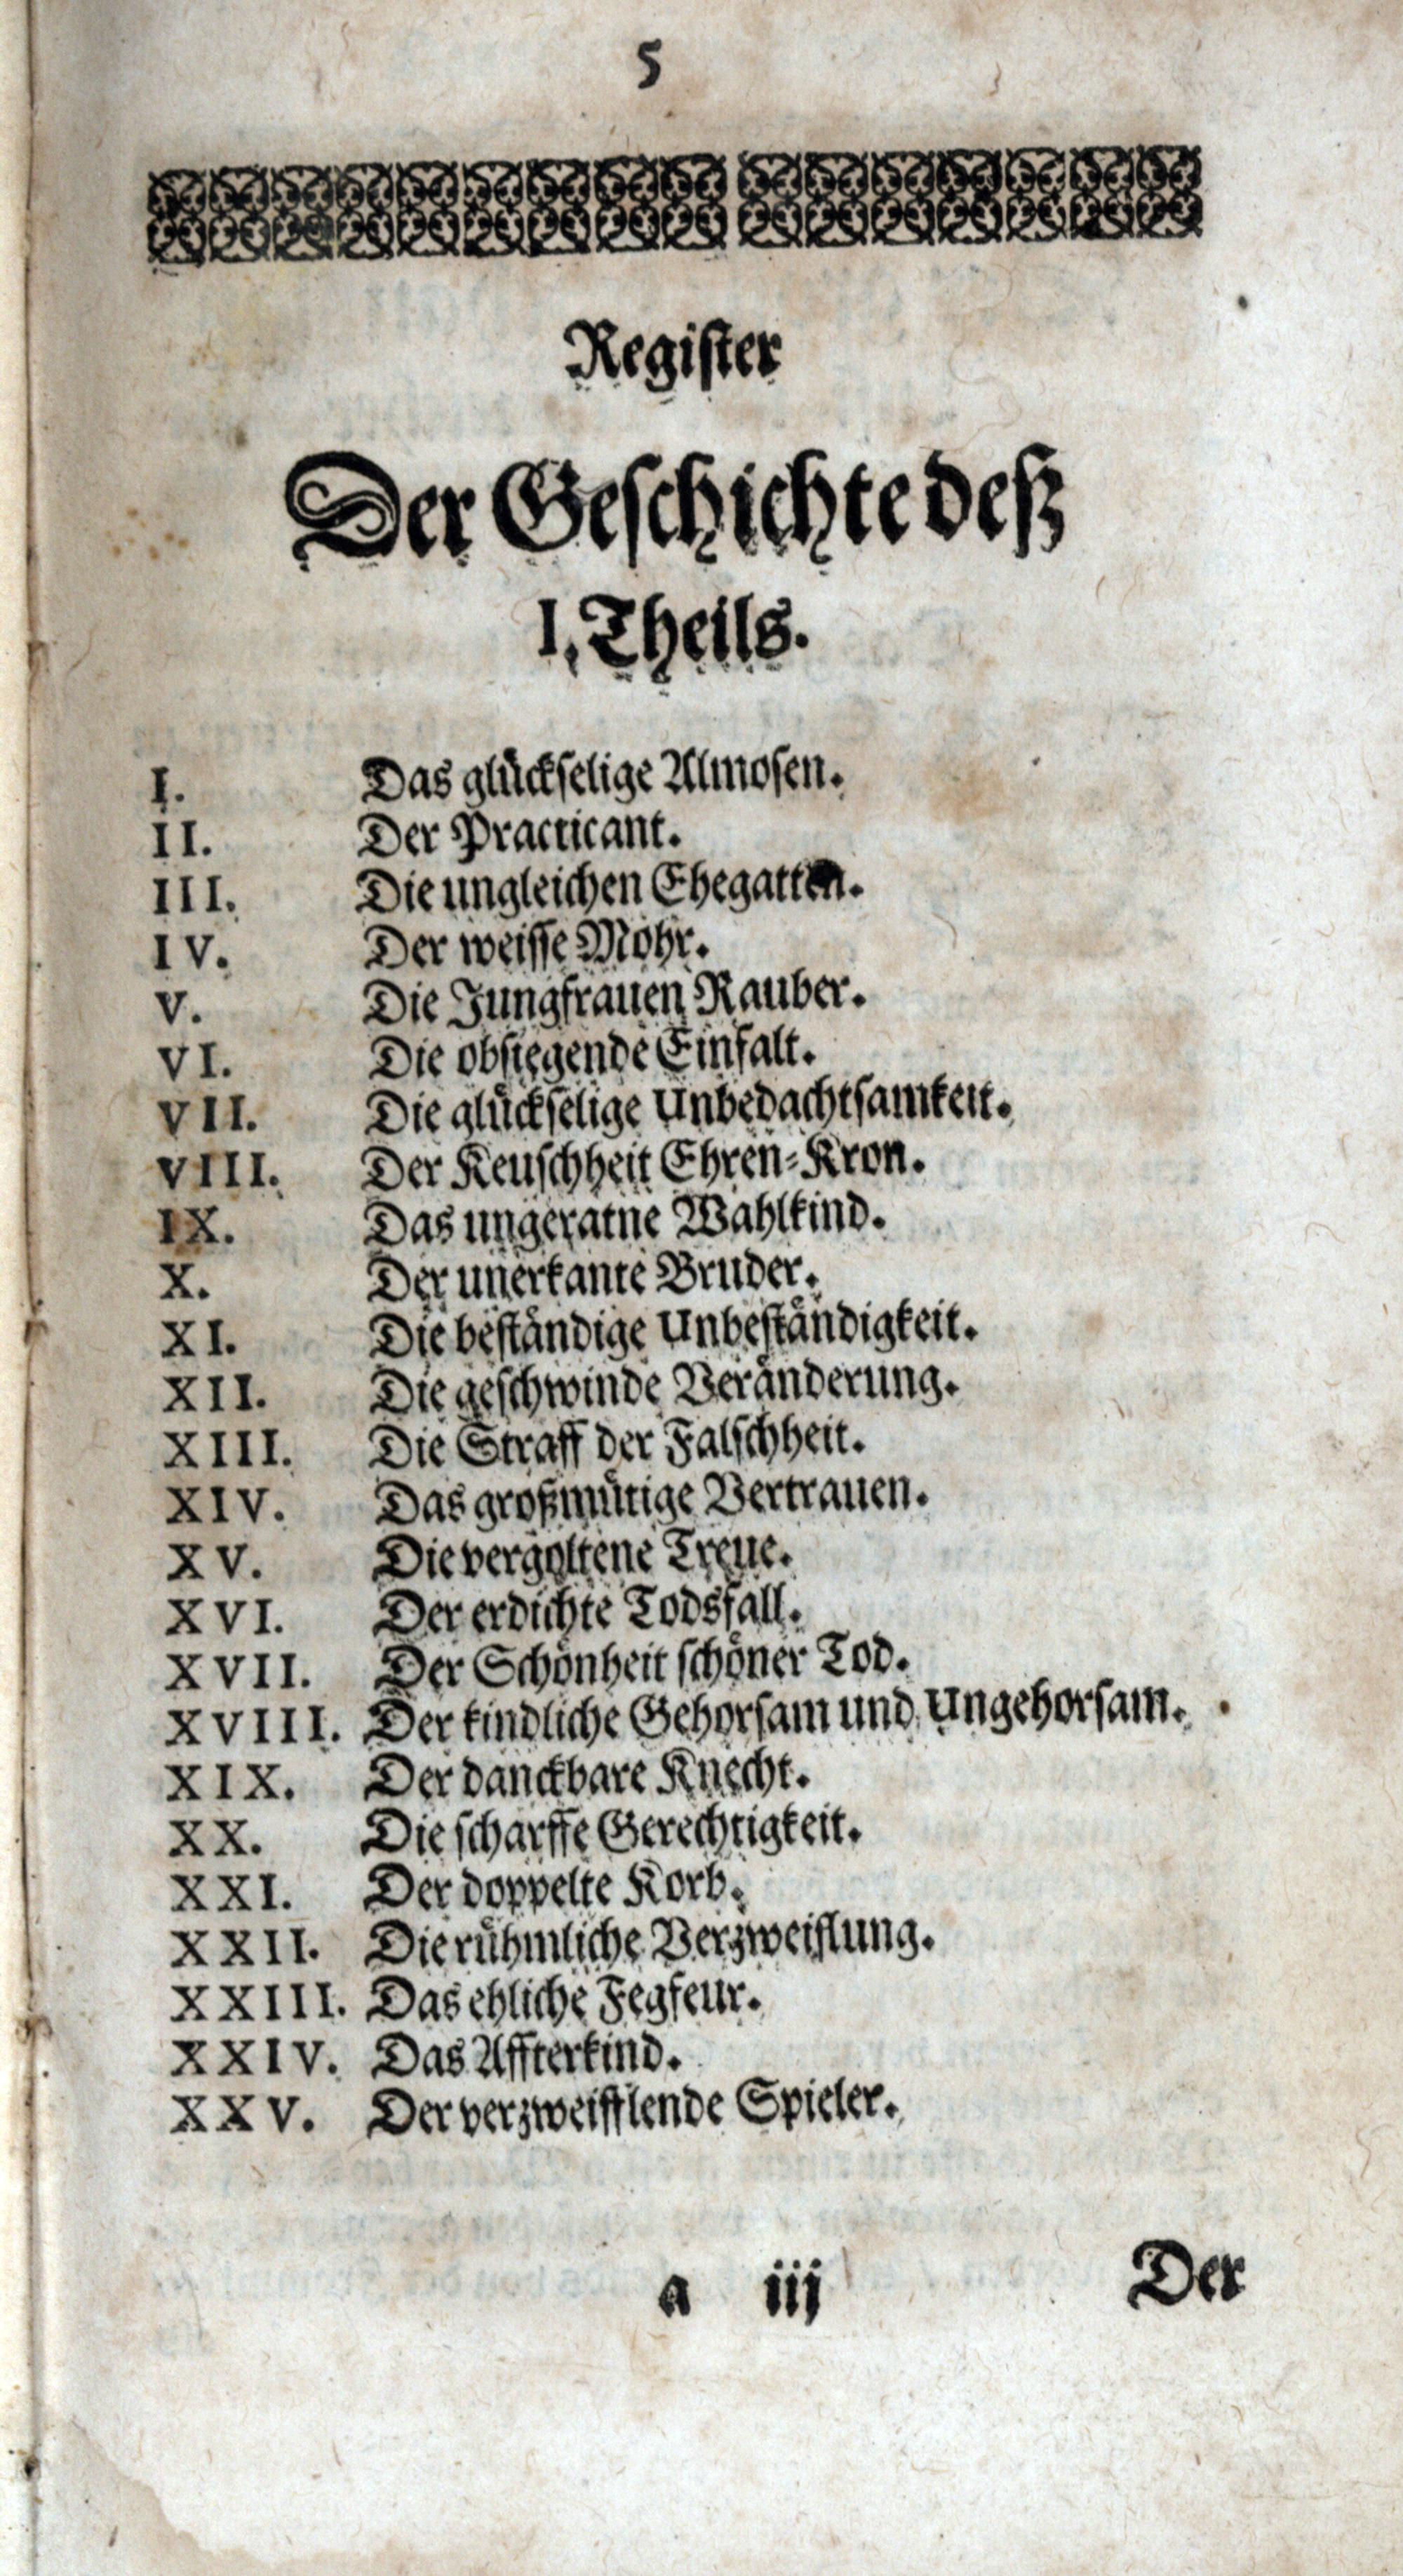 5
Register
Der Geschichte deß
I. Theils.
I. Das glückselige Almosen.
II. Der Practicant.
III. Die ungleichen Ehegatten.
IV. Der weisse Mohr.
V. Die Jungfrauen Rauber.
VI. Die obsiegende Einfalt.
VII. Die glückselige Unbedachtsamkeit.
VIII. Der Keuschheit Ehren-Kron.
IX. Das ungeratne Wahlkind.
X. Der unerkante Bruder.
XI. Die beständige Unbeständigkeit.
XII. Die geschwinde Veränderung.
XIII. Die Straff der Falschheit.
XIV. Das großmütige Vertrauen.
XV. Die vergoltene Treue.
XVI. Der erdichte Todsfall.
XVII. Der Schönheit schöner Tod.
XVIII. Der kindliche Gehorsam und Ungehorsam.
XIX. Der danckbare Knecht.
XX. Die scharffe Gerechtigkeit.
XXI. Der doppelte Korb.
XXII. Die rühmliche Verzweiflung.
XXIII. Das ehliche Fegfeur.
XXIV. Das Affterkind.
XXV. Der verzweifflende Spieler.
a iij Der